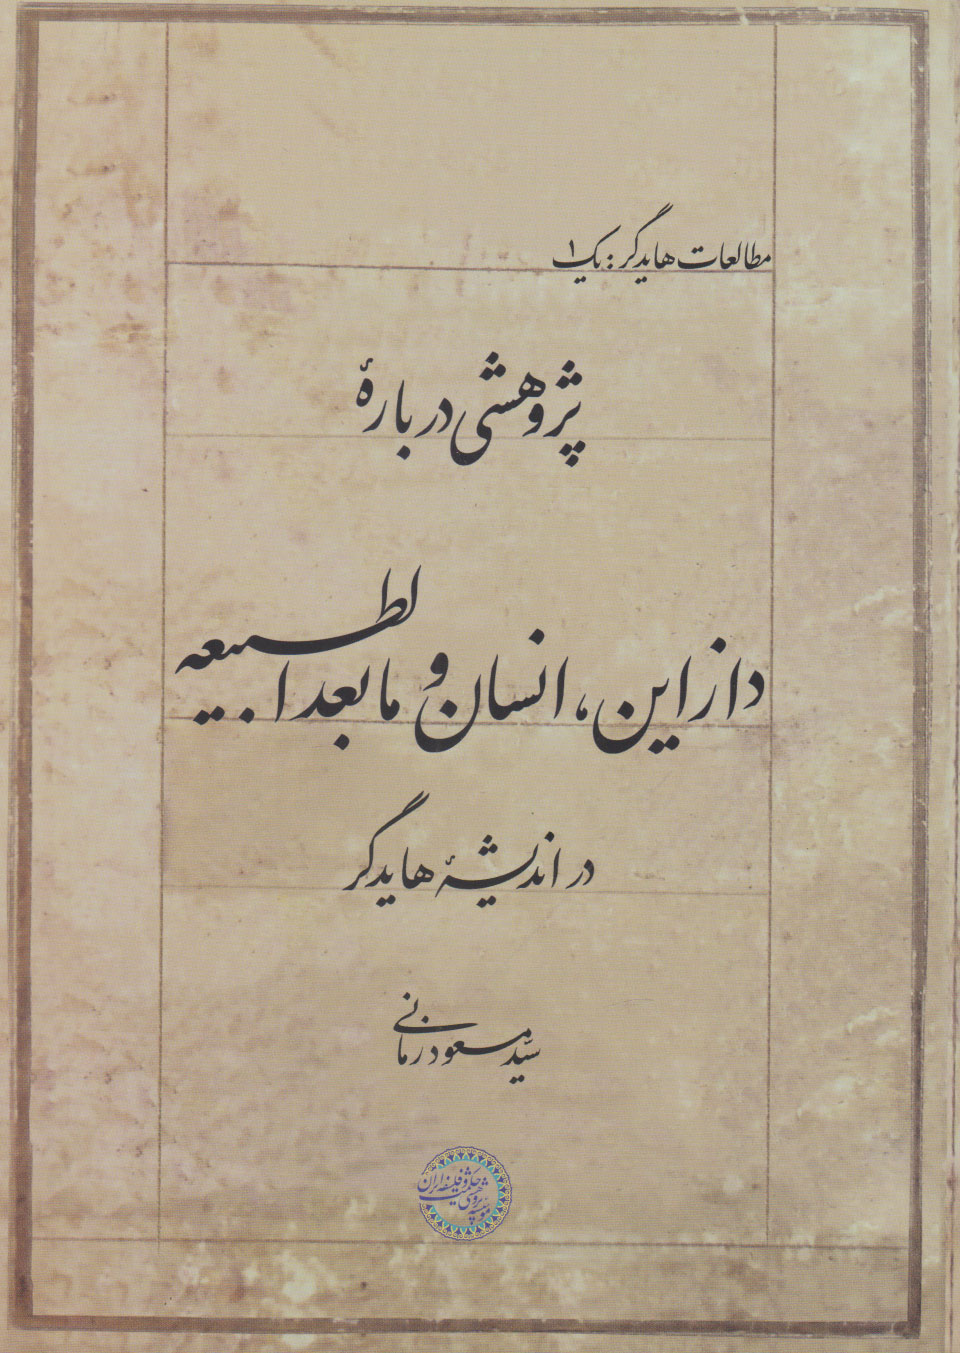 مطالعات هایدگر: یک ۱
پژوهشی دربارهٔ
دازاین، انسان و مابعدالطبیعه
در اندیشهٔ هایدگر
سیّد مسعود زمانی
مؤسسه پژوهشی حکمت و فلسفه ایران